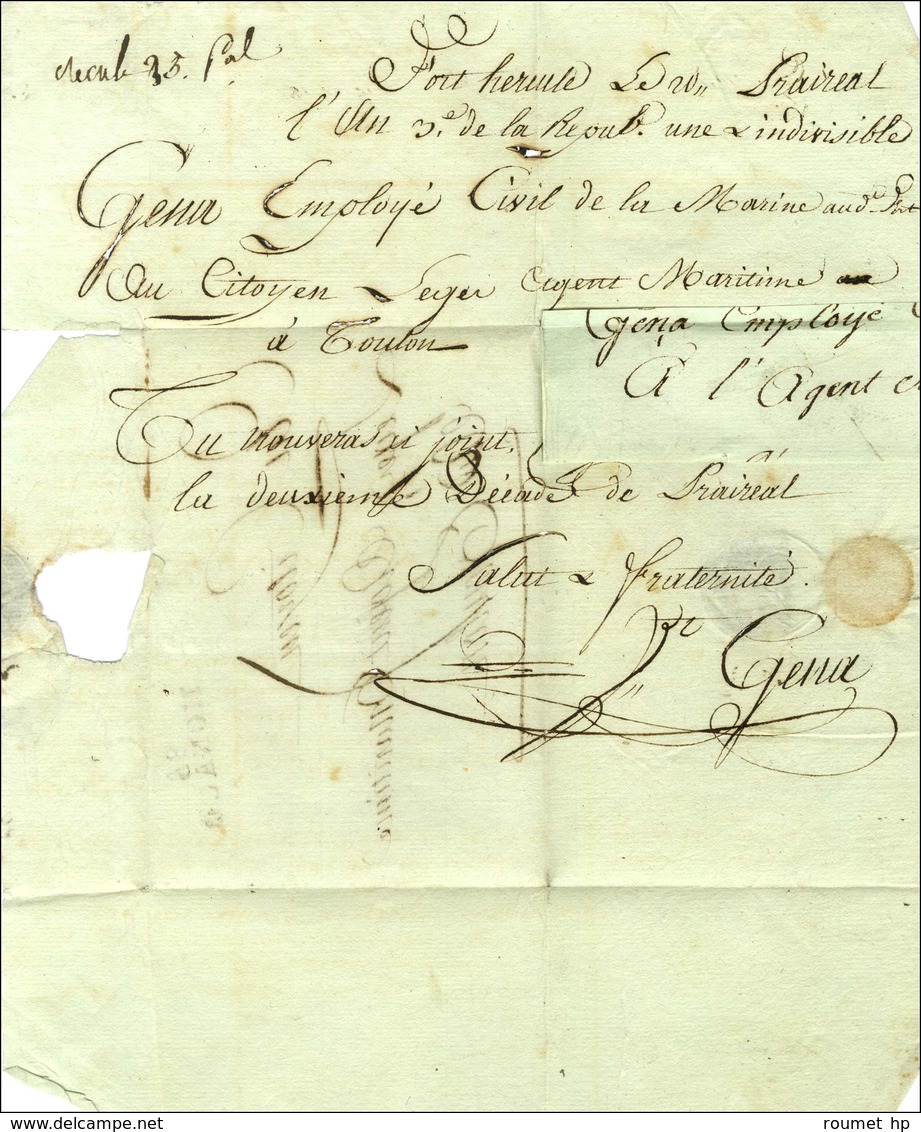 Recu le 25. Pal
Fort hercule Le 20,, Prairéal
l'An 3.e de la Repub. une & indivisible
Gena Employé Civil de la Marine aud. Port
Au Citoyen Leger Agent Maritime
Gena Employé
à Toulon
A l'Agent
Tu trouveras ci joint,
la deuxième Décade de Prairéal
Salut & fraternité.
Gena
www.delcampe.net
roumet hp